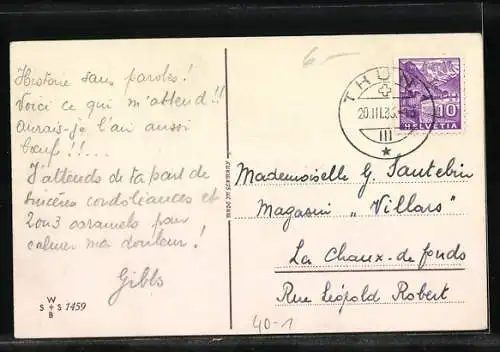 Histoire sans paroles!
Voici ce qui m'attend!!
Aurais-je l'air aussi
boeuf!!....
J'attends de ta part de
sincères condoléances et
2 ou 3 caramels pour
calmer ma douleur!
Gibbs
W
S + S 1459
B
MADE IN GERMANY
6-
THUN
20.III.35
III
10
HELVETIA
Mademoiselle G. Santebin
Magasin „Villars"
La Chaux-de-fonds
Rue Léopold Robert
40-1